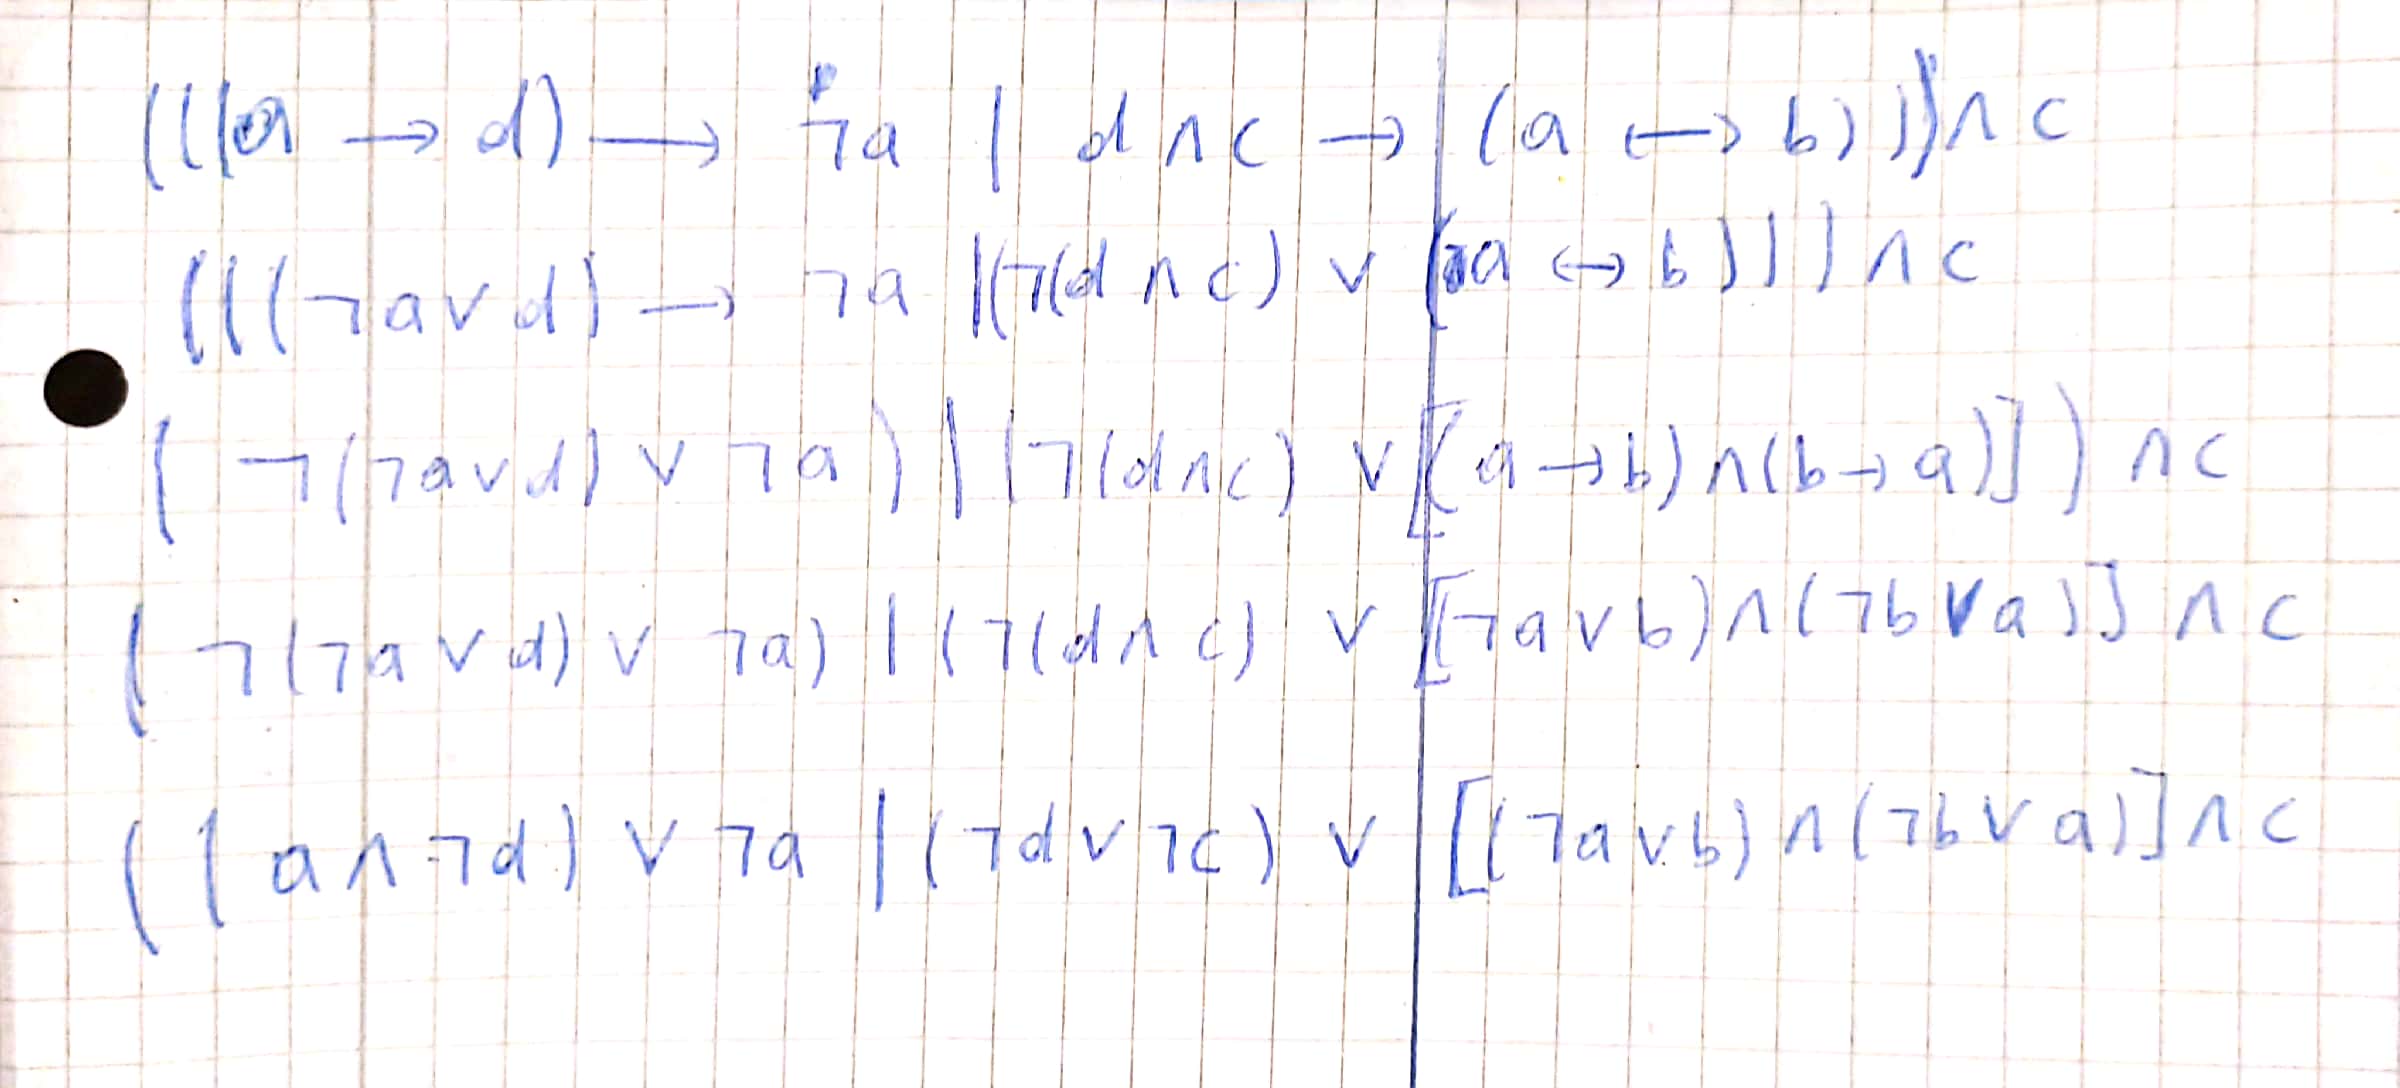 (((a → d) → ¬a | d ∧ c → (a ↔ b))) ∧ c
(((¬a ∨ d) → ¬a |(¬(d ∧ c) ∨ (a ↔ b))) ∧ c
( ¬(¬a ∨ d) ∨ ¬a ) | (¬(d ∧ c) ∨ [(a → b) ∧ (b → a)]) ∧ c
( ¬(¬a ∨ d) ∨ ¬a) | (¬(d ∧ c) ∨ [(¬a ∨ b) ∧ (¬b ∨ a)] ∧ c
(( a ∧ ¬d) ∨ ¬a | (¬d ∨ ¬c) ∨ [(¬a ∨ b) ∧ (¬b ∨ a)] ∧ c